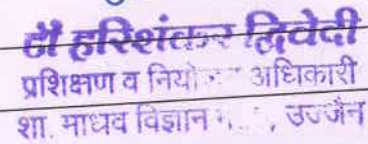 डॉ हरिशंकर द्विवेदी
प्रशिक्षण व अधिकारी
शा. माधव विज्ञान , उज्जैन